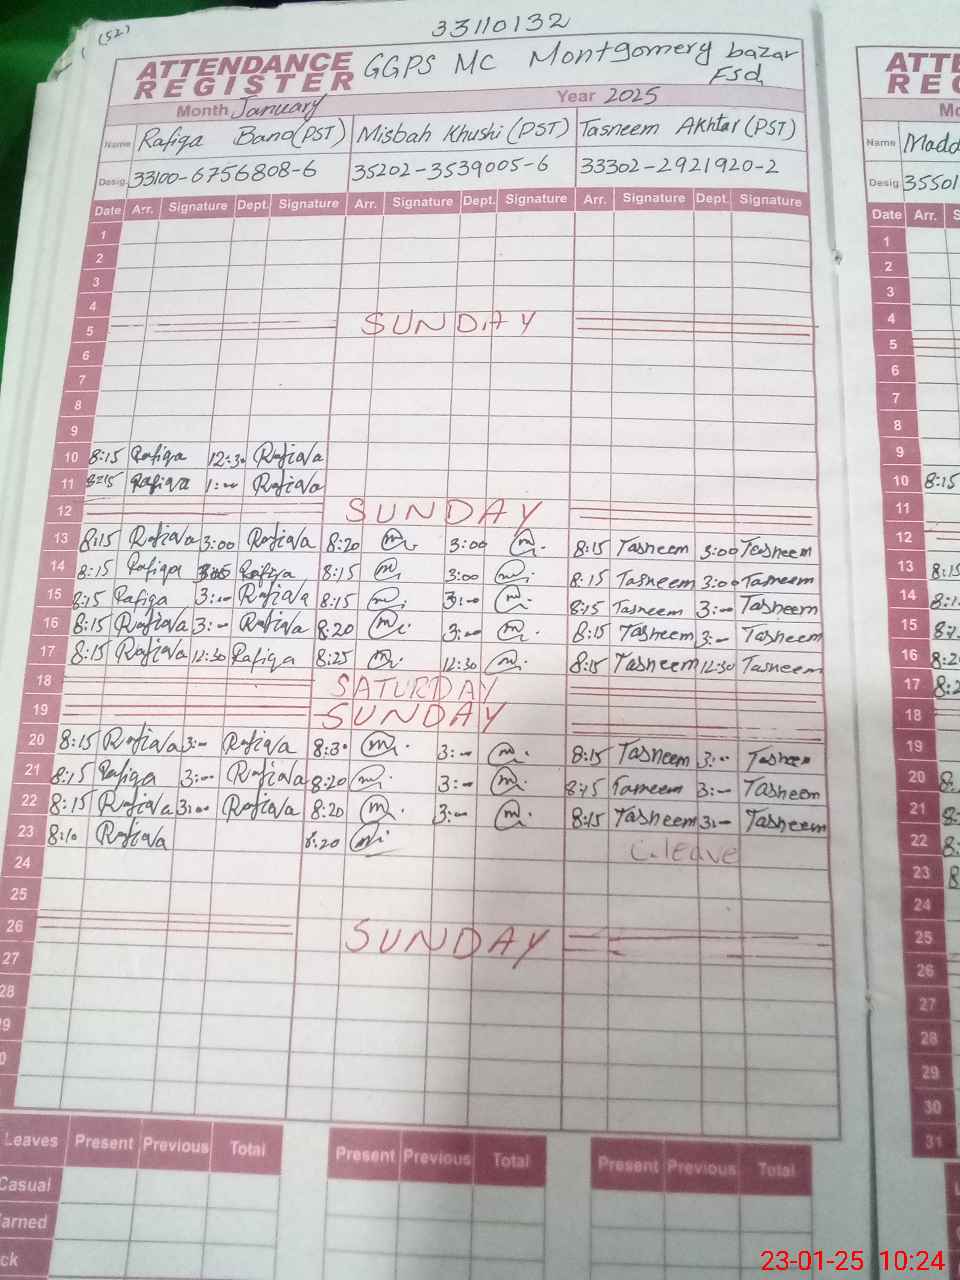 (52)
33110132
ATTENDANCE REGISTER GGPS MC Montgomery bazar Fsd
Month January Year 2025
Name Rafiqa Bano(PST) Misbah Khushi (PST) Tasneem Akhtar (PST)
Desig. 33100-6756808-6 35202-3539005-6 33302-2921920-2
Date Arr. Signature Dept. Signature Arr. Signature Dept. Signature Arr. Signature Dept. Signature
1
2
3
4
5 SUNDAY
6
7
8
9
10 8:15 Rafiqa 12:30 Rafiqa
11 8:15 Rafiqa 1:00 Rafiqa
12 SUNDAY
13 8:15 Rafiqa 3:00 Rafiqa 8:20 m 3:00 m 8:15 Tasneem 3:00 Tasneem
14 8:15 Rafiqa Rafiqa 8:15 m 3:00 m 8:15 Tasneem 3:00 Tasneem
15 8:15 Rafiqa 3:00 Rafiqa 8:15 m 3:00 m 8:15 Tasneem 3:00 Tasneem
16 8:15 Rafiqa 3:00 Rafiqa 8:20 m 3:00 m 8:15 Tasneem 3:00 Tasneem
17 8:15 Rafiqa 12:30 Rafiqa 8:25 m 12:30 m 8:15 Tasneem 12:30 Tasneem
18 SATURDAY
19 SUNDAY
20 8:15 Rafiqa 3:00 Rafiqa 8:30 m 3:00 m 8:15 Tasneem 3:00 Tasneem
21 8:15 Rafiqa 3:00 Rafiqa 8:20 m 3:00 m 8:15 Tasneem 3:00 Tasneem
22 8:15 Rafiqa 3:00 Rafiqa 8:20 m 3:00 m 8:15 Tasneem 3:00 Tasneem
23 8:10 Rafiqa 8:20 m C.leave
24
25
26 SUNDAY
27
28
9
0
Leaves Present Previous Total Present Previous Total Present Previous Total
Casual
arned
ck
ATT
REG
Mo
Name Madd
Desig 35501
Date Arr. S
1
2
3
4
5
6
7
8
9
10 8:15
11
12
13 8:15
14
15
16
17
18
19
20
21
22
23
24
25
26
27
28
29
30
31
23-01-25 10:24